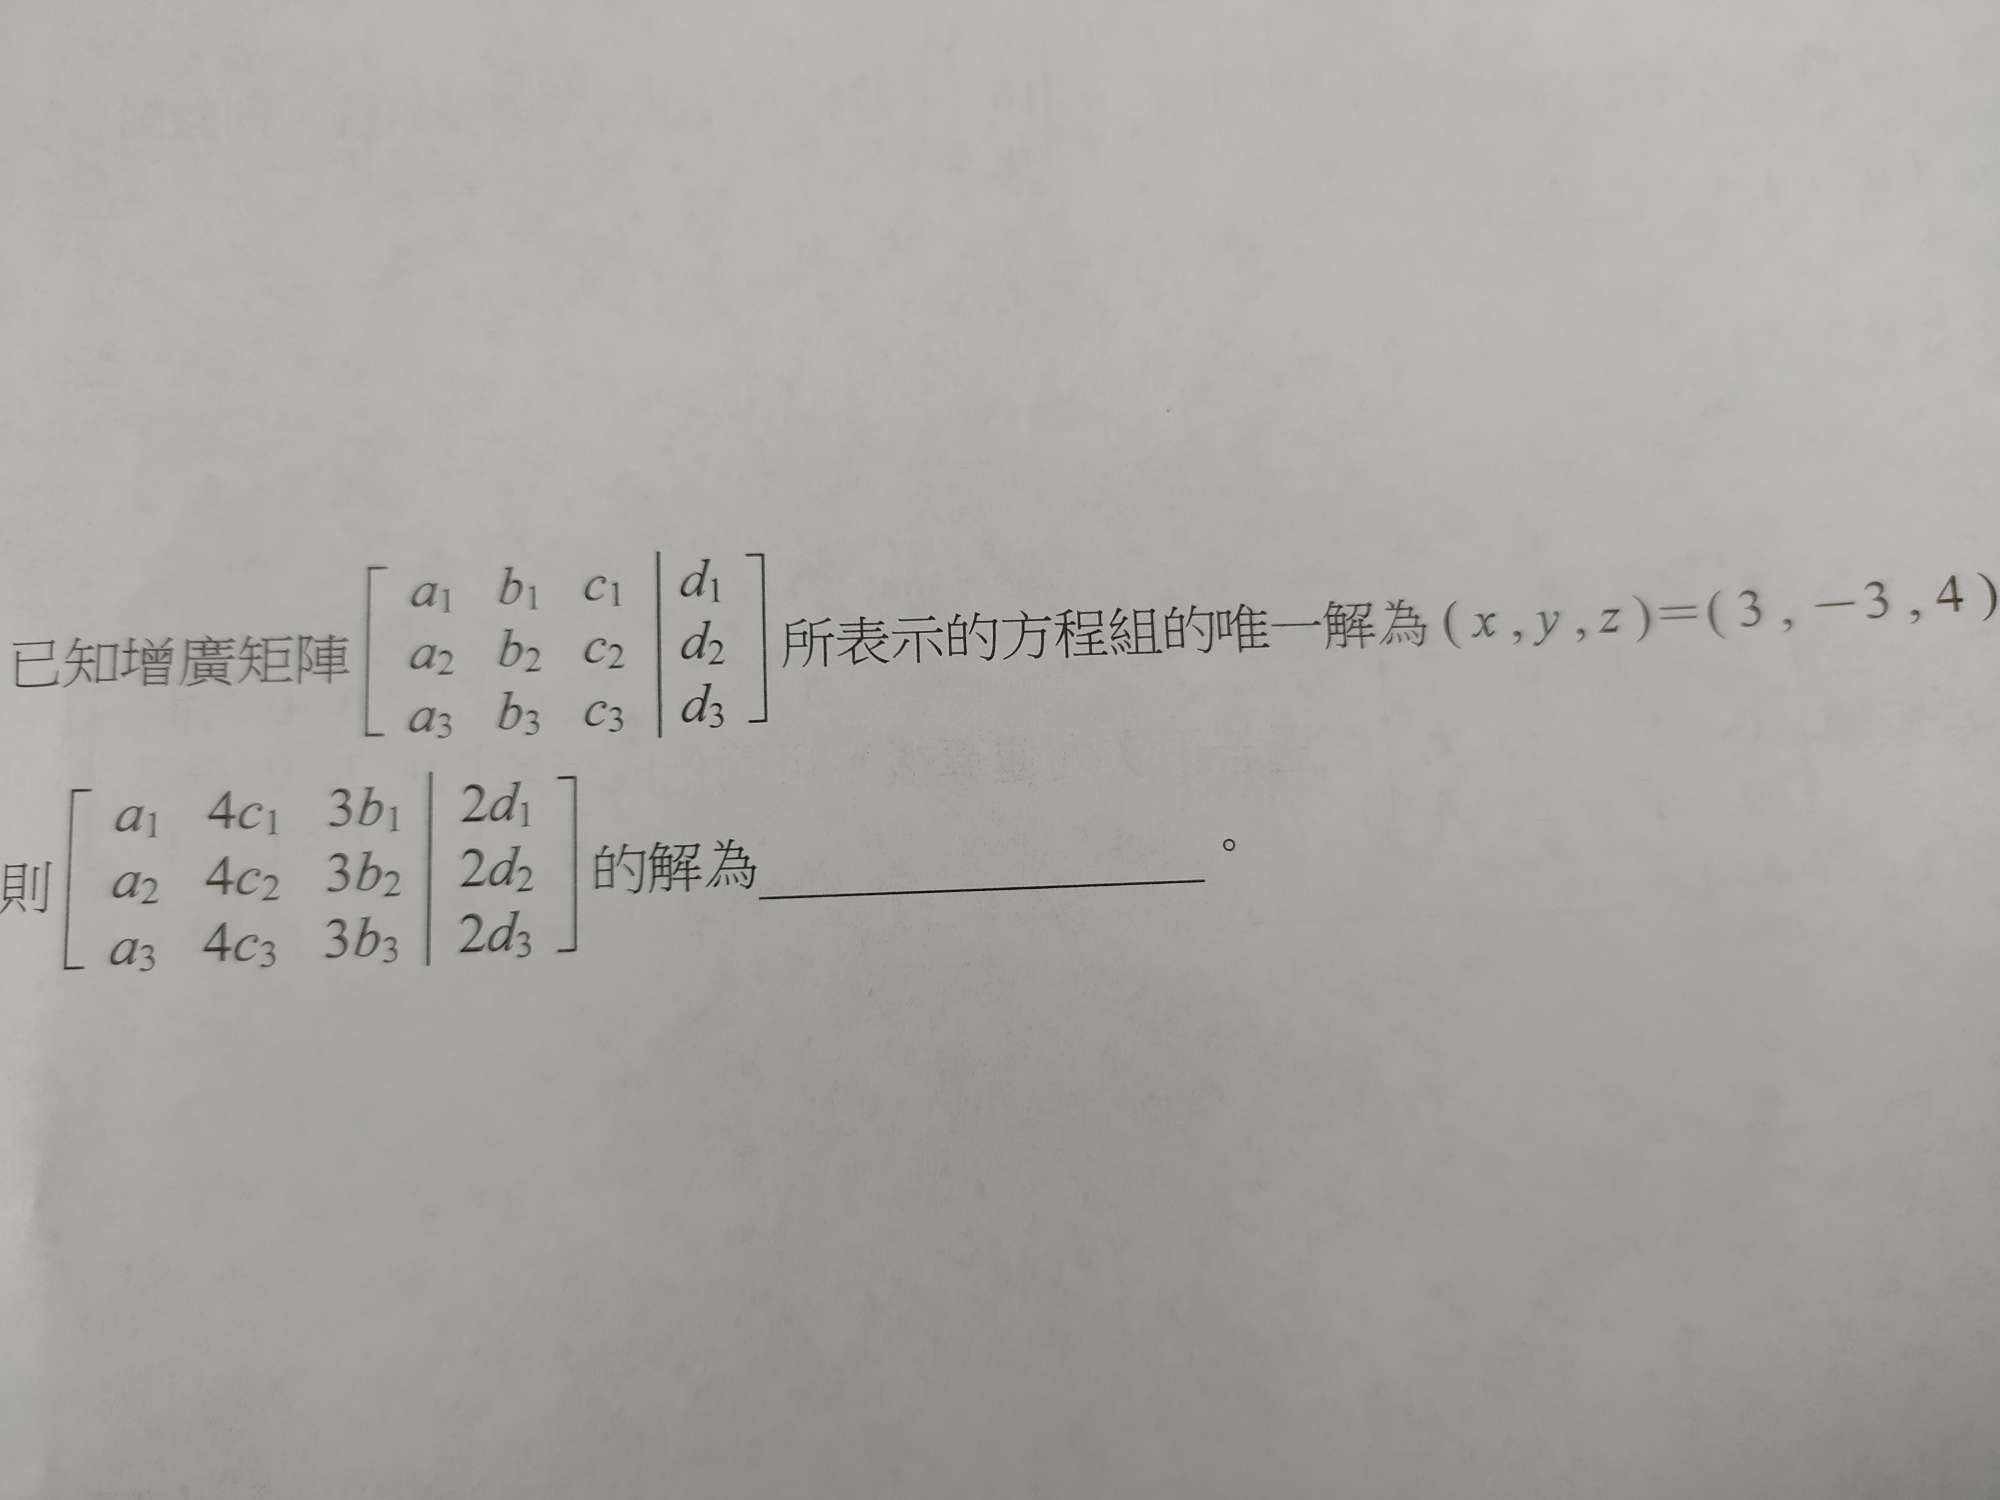 已知增廣矩陣[a₁ b₁ c₁ | d₁; a₂ b₂ c₂ | d₂; a₃ b₃ c₃ | d₃]所表示的方程組的唯一解為(x,y,z)=(3,−3,4)
則[a₁ 4c₁ 3b₁ | 2d₁; a₂ 4c₂ 3b₂ | 2d₂; a₃ 4c₃ 3b₃ | 2d₃]的解為__________。